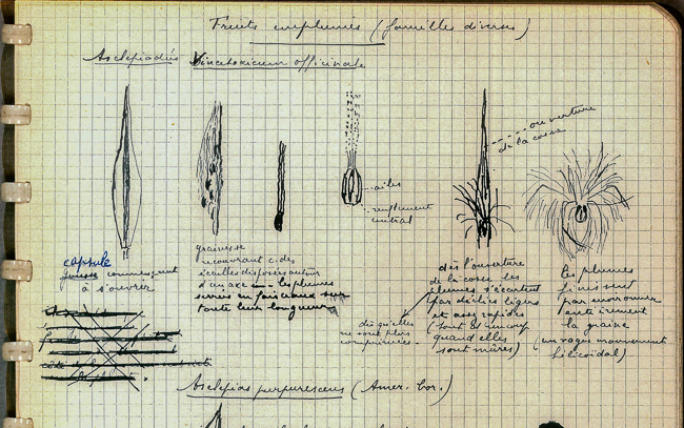 Fruits emplumés (familles diverses)
Asclépiadées Vincetoxicum officinale
ouverture
de la cosse
ailes
renflement
central
capsule
commençant
à s'ouvrir
graines se
recouvrant c. des
écailles disposées autour
d'un axe — les plumes
serrées en faisceaux sur
toute leur longueur
dès qu'elles
ne sont plus
comprimées
dès l'ouverture
de la cosse les
plumes s'écartent
par déclics légers
et assez rapides
(tout au moins
quand elles
sont mûres)
les plumes
finissent
par environner
entièrement
la graine
(un vague mouvement
hélicoïdal)
Asclepias purpurescens (Amer. bor.)